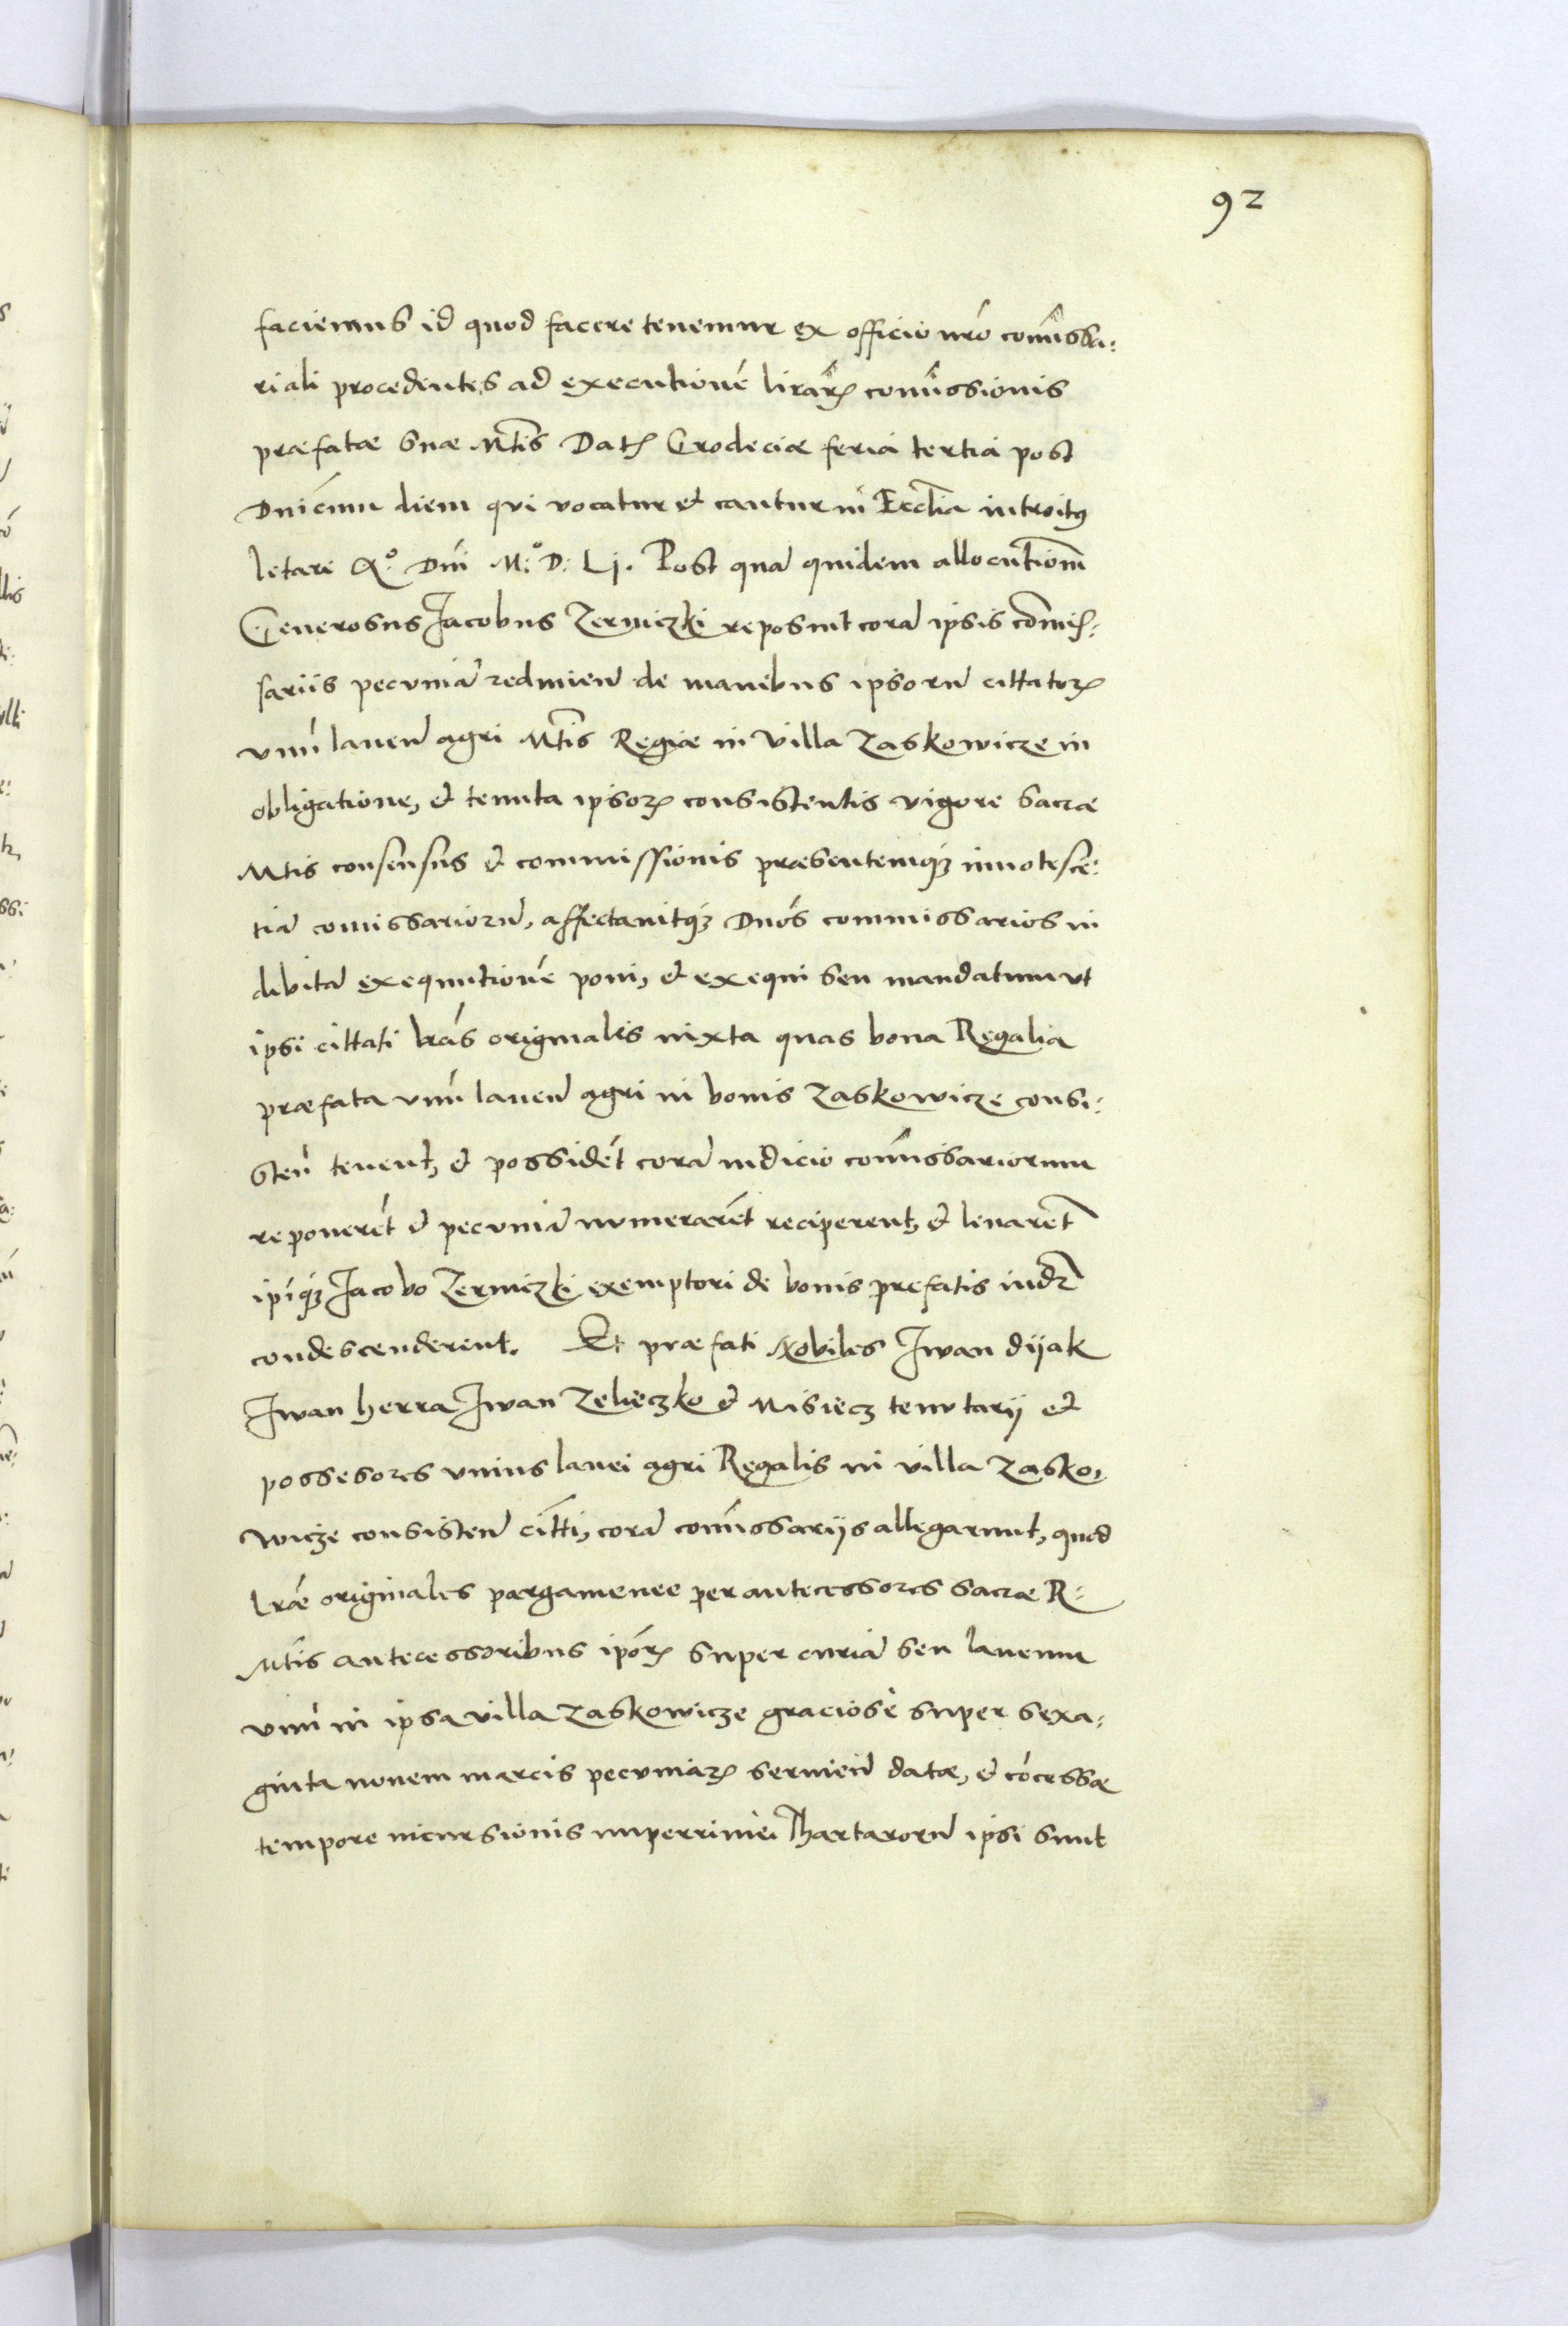 92
faciemus id quod facere tenemur ex officio nr̃o com̃issa:
riali procedentes ad executionẽ lirarꝝ com̃issionis
præfatæ suæ Mtis Datꝝ Grodeciæ feria tertia post
Dnicum diem qui vocatur et cantur in Ecclia introitꝰ
letare Aº Dni M:º D: Lj. Post quã quidem allocutionẽ
Generosus Jacobus Zerniczki reposuit corã ipsis cõmis:
sariis pecuniã redimien̄ de manibus ipsorũ cittatorꝝ
vnũ laneũ agri Mtis Regiæ in villa Zaskowicze in
obligatione, et tenuta ipsorꝝ consistentis vigore sacræ
Mtis consensus et commissionis præsentemqȝ innotesce:
tiã comissariorũ, affectauitqȝ Dnõs commissarios in
debitã exequutionẽ poni, et exequi seu mandatum vt
ipsi cittati lrãs originales iuxta quas bona Regalia
præfata vnũ laneũ agri in bonis Zaskowicze consi:
sten̄ tenent, et possidẽt corã iudicio com̃issariorum
reponerẽt et pecuniã numerarẽt reciperent, et leuarẽt
ipĩqȝ Jacobo Zerniczki exemptori de bonis prefatis iudꝛ
condescenderent. Et præfati Nobiles Jwan dijak
Jwan herra Jwan Zelieczko et Misiecz tenutarij et
possesores vnius lanei agri Regalis in villa Zasko,
wicze consisten̄ citti, corã com̃issarijs allegarunt, quod
lræ originales pargamenee per antecessores sacræ R:
Mtis antecessoribus ipõrꝝ super curiã seu laneum
vnũ in ipsa villa Zaskowicze graciosè super sexa:
ginta nonem marcis pecuniarꝝ seruien̄ datæ, et cõcessæ
tempore incursionis nuperrimè Thartarorũ ipsi sunt